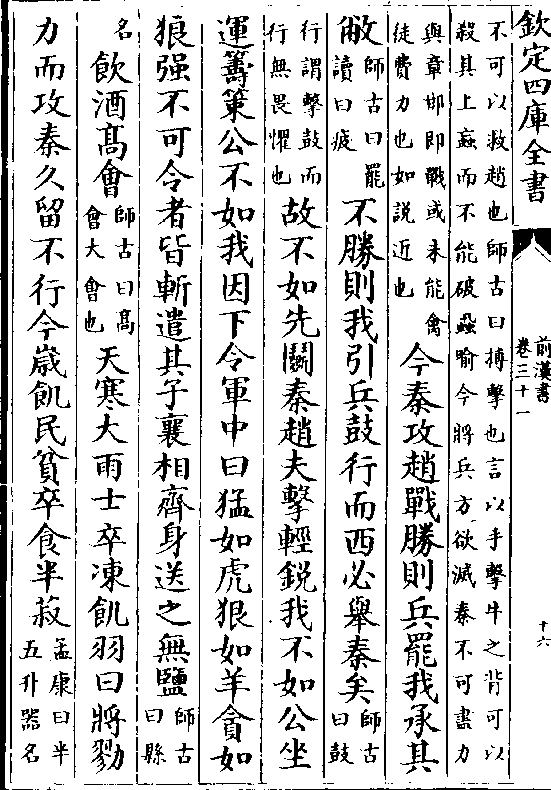 欽定四庫全書
前漢書
卷三十一
十六
不可以救趙也師古曰搏擊也言以手擊牛之背可以
殺其上蝱而不能破蝨喻今將兵方欲滅秦不可盡力
與章邯即戰或未能禽
徒費力也如說近也
今秦攻趙戰勝則兵罷我承其
敝
師古曰罷
讀曰疲
不勝則我引兵鼓行而西必舉秦矣
師古
曰鼓
行謂擊鼓而
行無畏懼也
故不如先鬭秦趙夫擊輕銳我不如公坐
運籌策公不如我因下令軍中曰猛如虎狠如羊貪如
狼强不可令者皆斬遣其子襄相齊身送之無鹽
師古
曰縣
名
飲酒髙會
師古曰髙
會大會也
天寒大雨士卒凍飢羽曰將勠
力而攻秦久留不行今嵗飢民貧卒食半菽
孟康曰半
五升器名